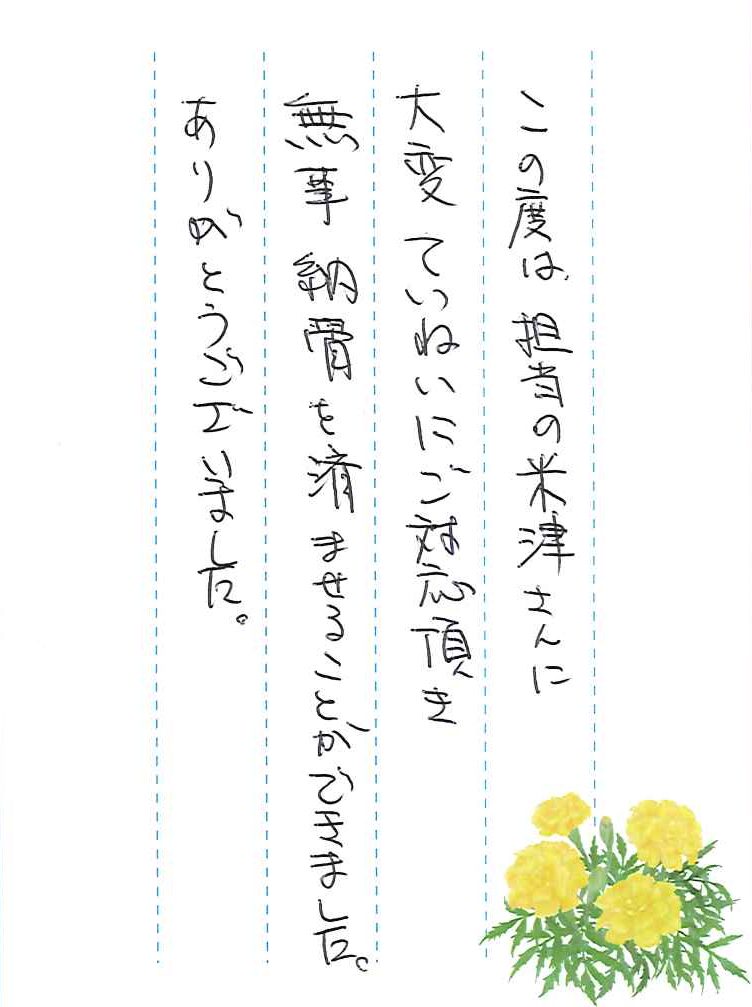 この度は、担当の米津さんに
大変ていねいにご対応頂き
無事納骨を済ませることができました。
ありがとうございました。